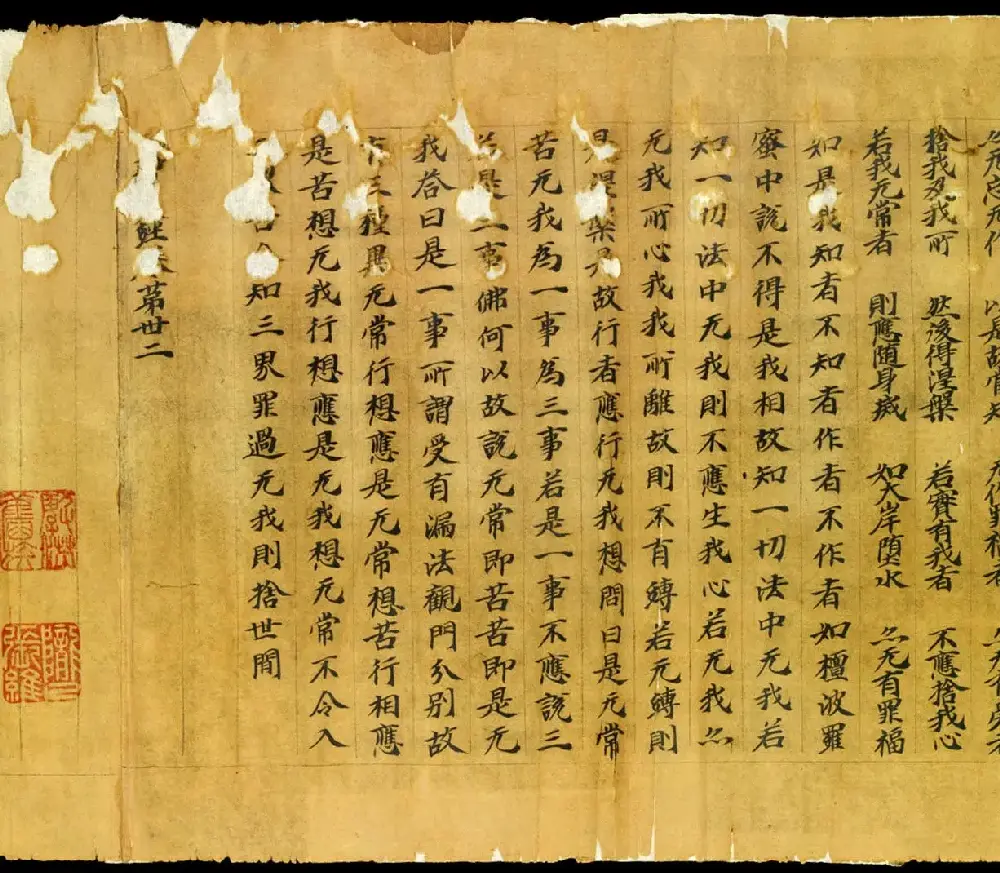 以是故當知 亦无有受者
捨我及我所 然後得涅槃 若實有我者 不應捨我心
若我无常者 則應随身滅 如大岸墮水 亦无有罪福
如是我知者不知者作者不作者如檀波羅
蜜中說不得是我相故知一切法中无我若
知一切法中无我則不應生我心若无我亦
无我所心我我所離故則不有縛若无縛則
是涅槃是故行者應行无我想問曰是无常
苦无我為一事為三事若是一事不應說三
若是三事佛何以故說无常即苦苦即是无
我荅曰是一事所謂受有漏法觀門分別故
有三種異无常行想應是无常想苦行相應
是苦想无我行想應是无我想无常不令入
知三界罪過无我則捨世間
經卷第卅二